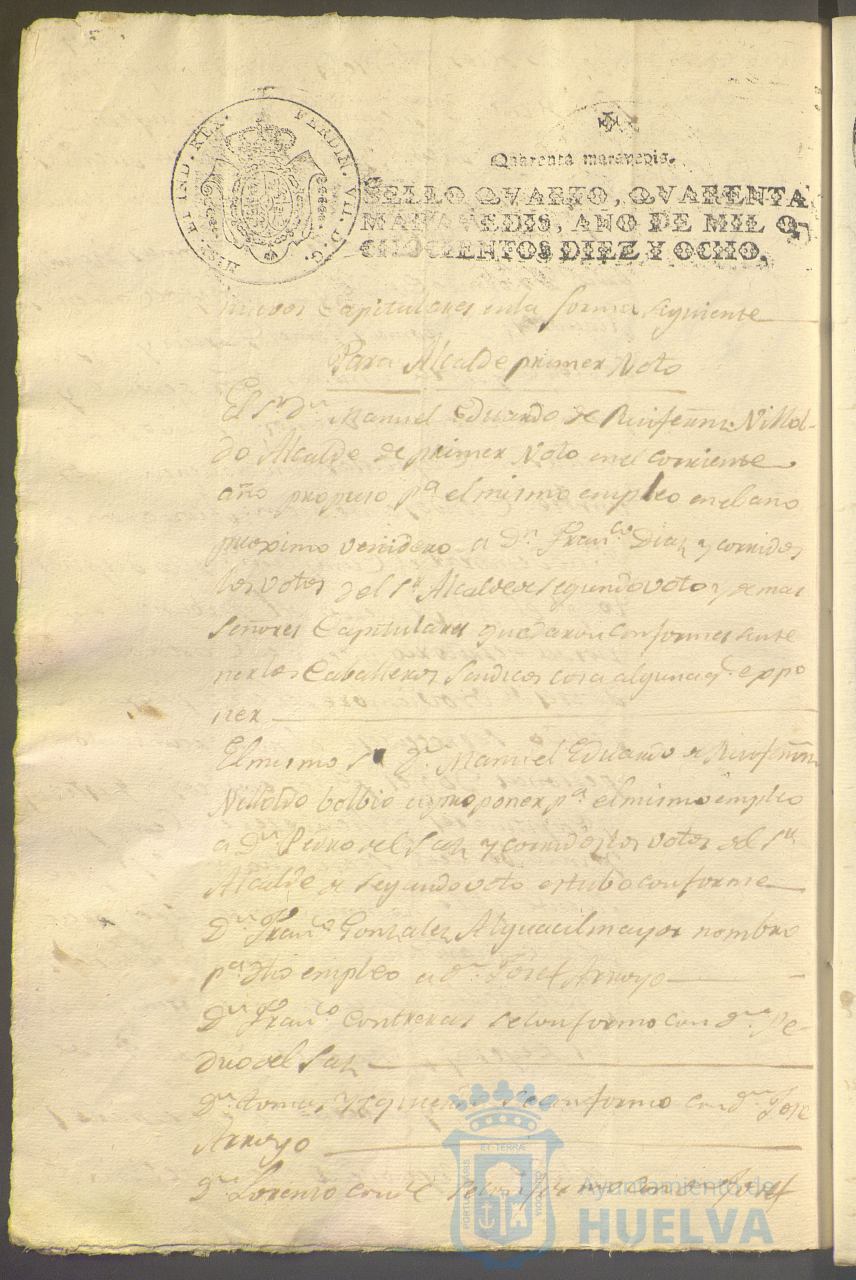 HISP. ET IND. REX. FERDIN. VII. D. G.
Quarenta maravedis.
SELLO QVARTO, QVARENTA
MARAVEDIS, AÑO DE MIL O-
CHOCIENTOS DIEZ Y OCHO.
nuevos Capitulares enla forma siguiente
Para Alcalde primer Voto
El Sr. Dn. Manuel Eduardo de
do Alcalde de primer Voto en el corriente
año propuso pa. el mismo empleo en el año
proximo venidero a Dn. Franco. Diaz y corridos
los votos del Sr. Alcalde de segundo voto y demas
señores Capitulares quedaron conformes sinte
ner los Caballeros Sindicos cosa alguna q. expo
ner
El mismo Sr. Dn. Manuel Eduardo de
bolbio a proponer pa. el mismo empleo
a Dn. Pedro del Saz y corridos los votos el Sr.
Alcalde de segundo voto estubo conforme
Dn. Franco. Gonzalez Alguacil mayor nombro
pa. dho empleo a Dn. Josef Arroyo
Dn. Franco. Contreras se conformo con Dn. Pe-
dro del Saz
Dn. Tomas se conformo con Dn. Jose
Arroyo
Dn. Lorenzo se conformo con Josef
PORTUS MARIS ET TERRAE CUSTODIA
Ayuntamiento de
HUELVA